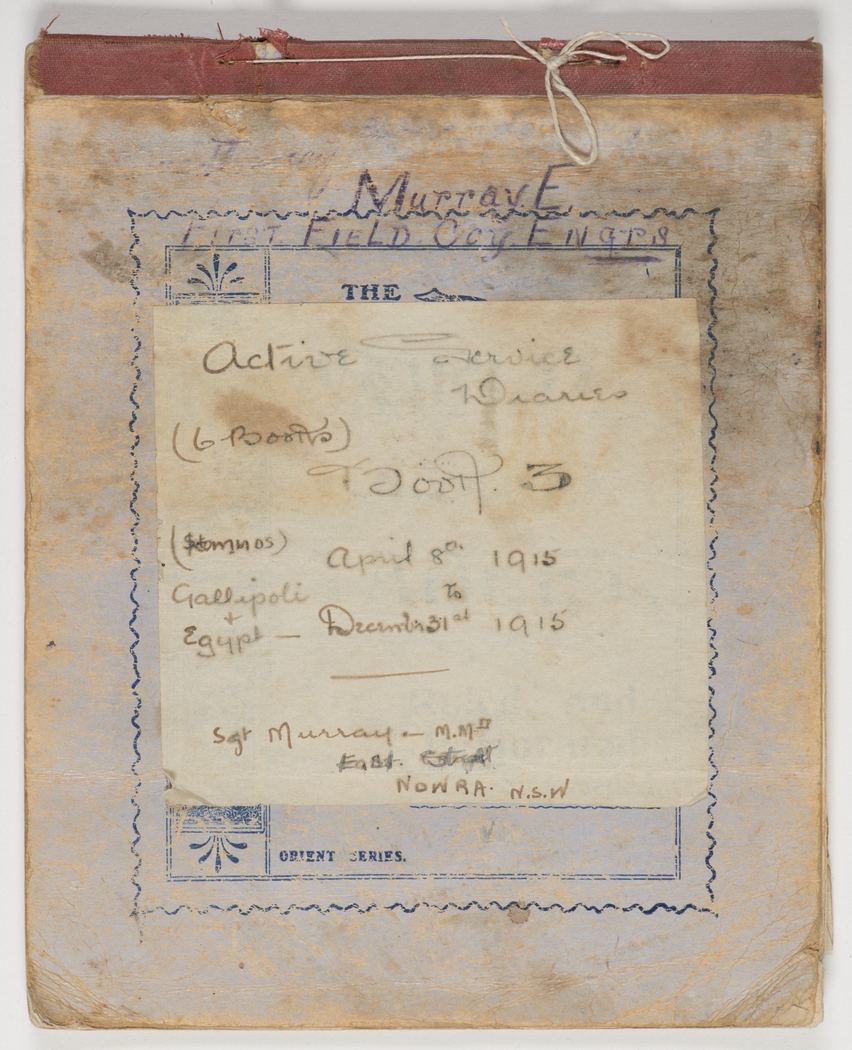 Murray. E.
FIRST. FIELD. Coy. ENGRS
THE
Active Service
Diaries
(6 Books)
Book. 3
(Lemnos)
April 8th 1915
Gallipoli
To
+
Egypt — December 31st 1915
Sgt Murray — M.M
East. Street
NOWRA. N.S.W
ORIENT SERIES.